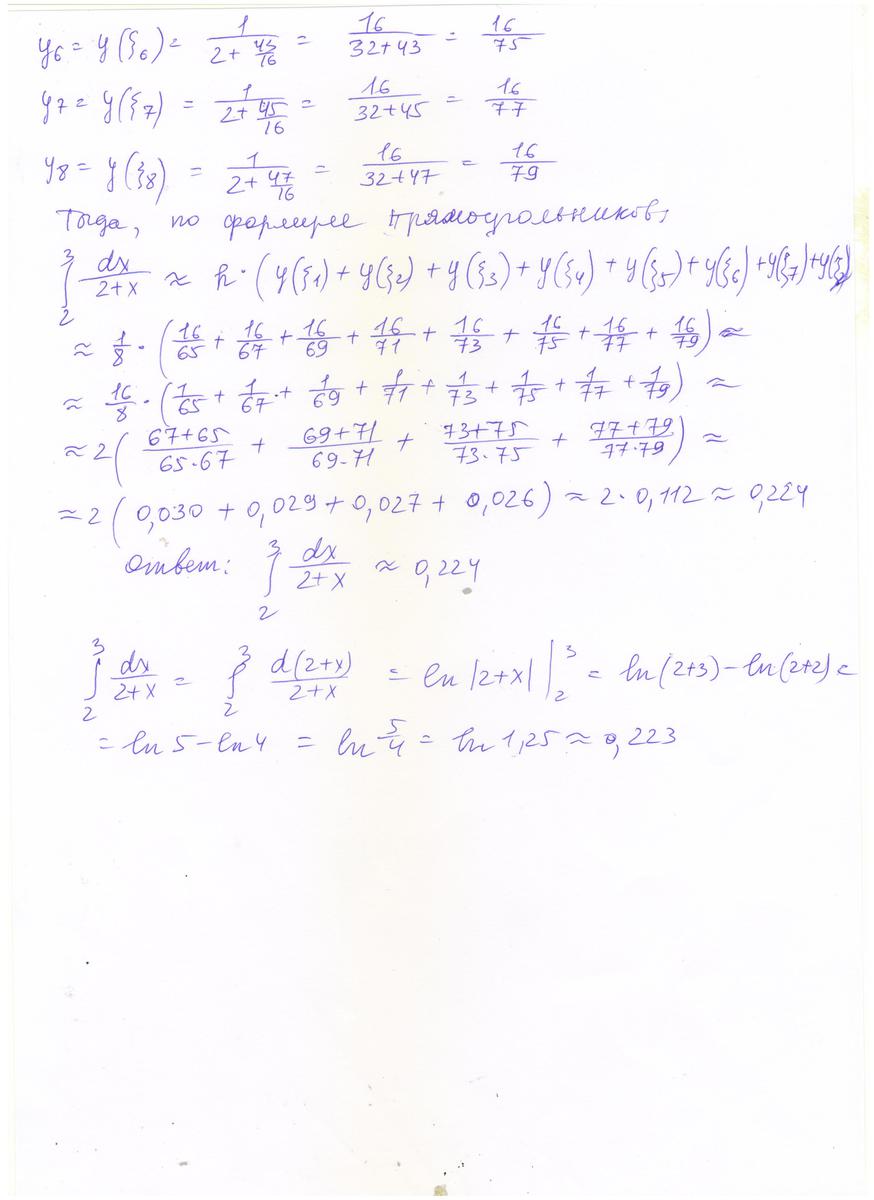 y₆ = y(ξ₆) = 1/(2+43/16) = 16/(32+43) = 16/75
y₇ = y(ξ₇) = 1/(2+45/16) = 16/(32+45) = 16/77
y₈ = y(ξ₈) = 1/(2+47/16) = 16/(32+47) = 16/79
Тогда, по формуле прямоугольников,
∫₂³ dx/(2+x) ≈ h·(y(ξ₁)+y(ξ₂)+y(ξ₃)+y(ξ₄)+y(ξ₅)+y(ξ₆)+y(ξ₇)+y(ξ₈))
≈ 1/8·(16/65+16/67+16/69+16/71+16/73+16/75+16/77+16/79) ≈
≈ 16/8·(1/65+1/67+1/69+1/71+1/73+1/75+1/77+1/79) ≈
≈ 2((67+65)/(65·67) + (69+71)/(69·71) + (73+75)/(73·75) + (77+79)/(77·79)) ≈
≈ 2(0,030 + 0,029 + 0,027 + 0,026) ≈ 2·0,112 ≈ 0,224
Ответ: ∫₂³ dx/(2+x) ≈ 0,224
∫₂³ dx/(2+x) = ∫₂³ d(2+x)/(2+x) = ln|2+x| |₂³ = ln(2+3)−ln(2+2) =
= ln5−ln4 = ln 5/4 = ln 1,25 ≈ 0,223